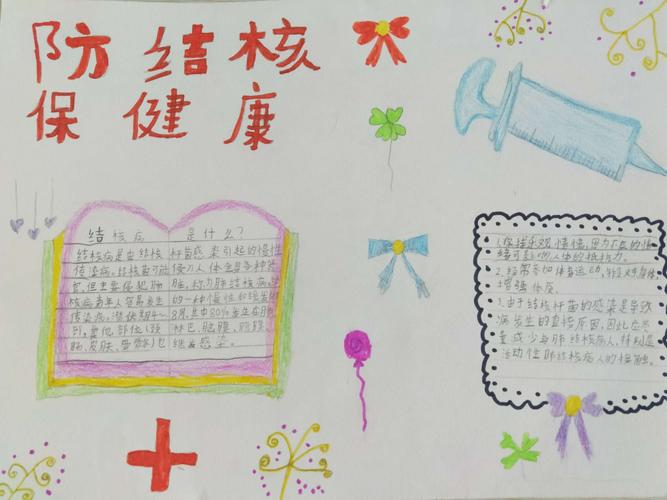 防结核
保健康
结核病是什么?
结核病是由结核杆菌感染引起的慢性
传染病。结核菌可能侵入人体全身各种器
官,但主要侵犯肺脏,称为肺结核病。结
核病青年人容易发生的一种慢性和
传染病。潜伏期4~8周。其中80%发生在肺
部。其他部位(颈淋巴、脑膜、
肠、皮肤、骨骼)也继发感染。
1.保持乐观情绪,因为不良的情
绪可影响人体的抵抗力。
2.经常参加体育运动,
增强体质。
3.由于结核杆菌的感染是导致
病发生的直接原因,因此应尽
量减少与肺结核病人,特别是
活动性肺结核病人的接触。